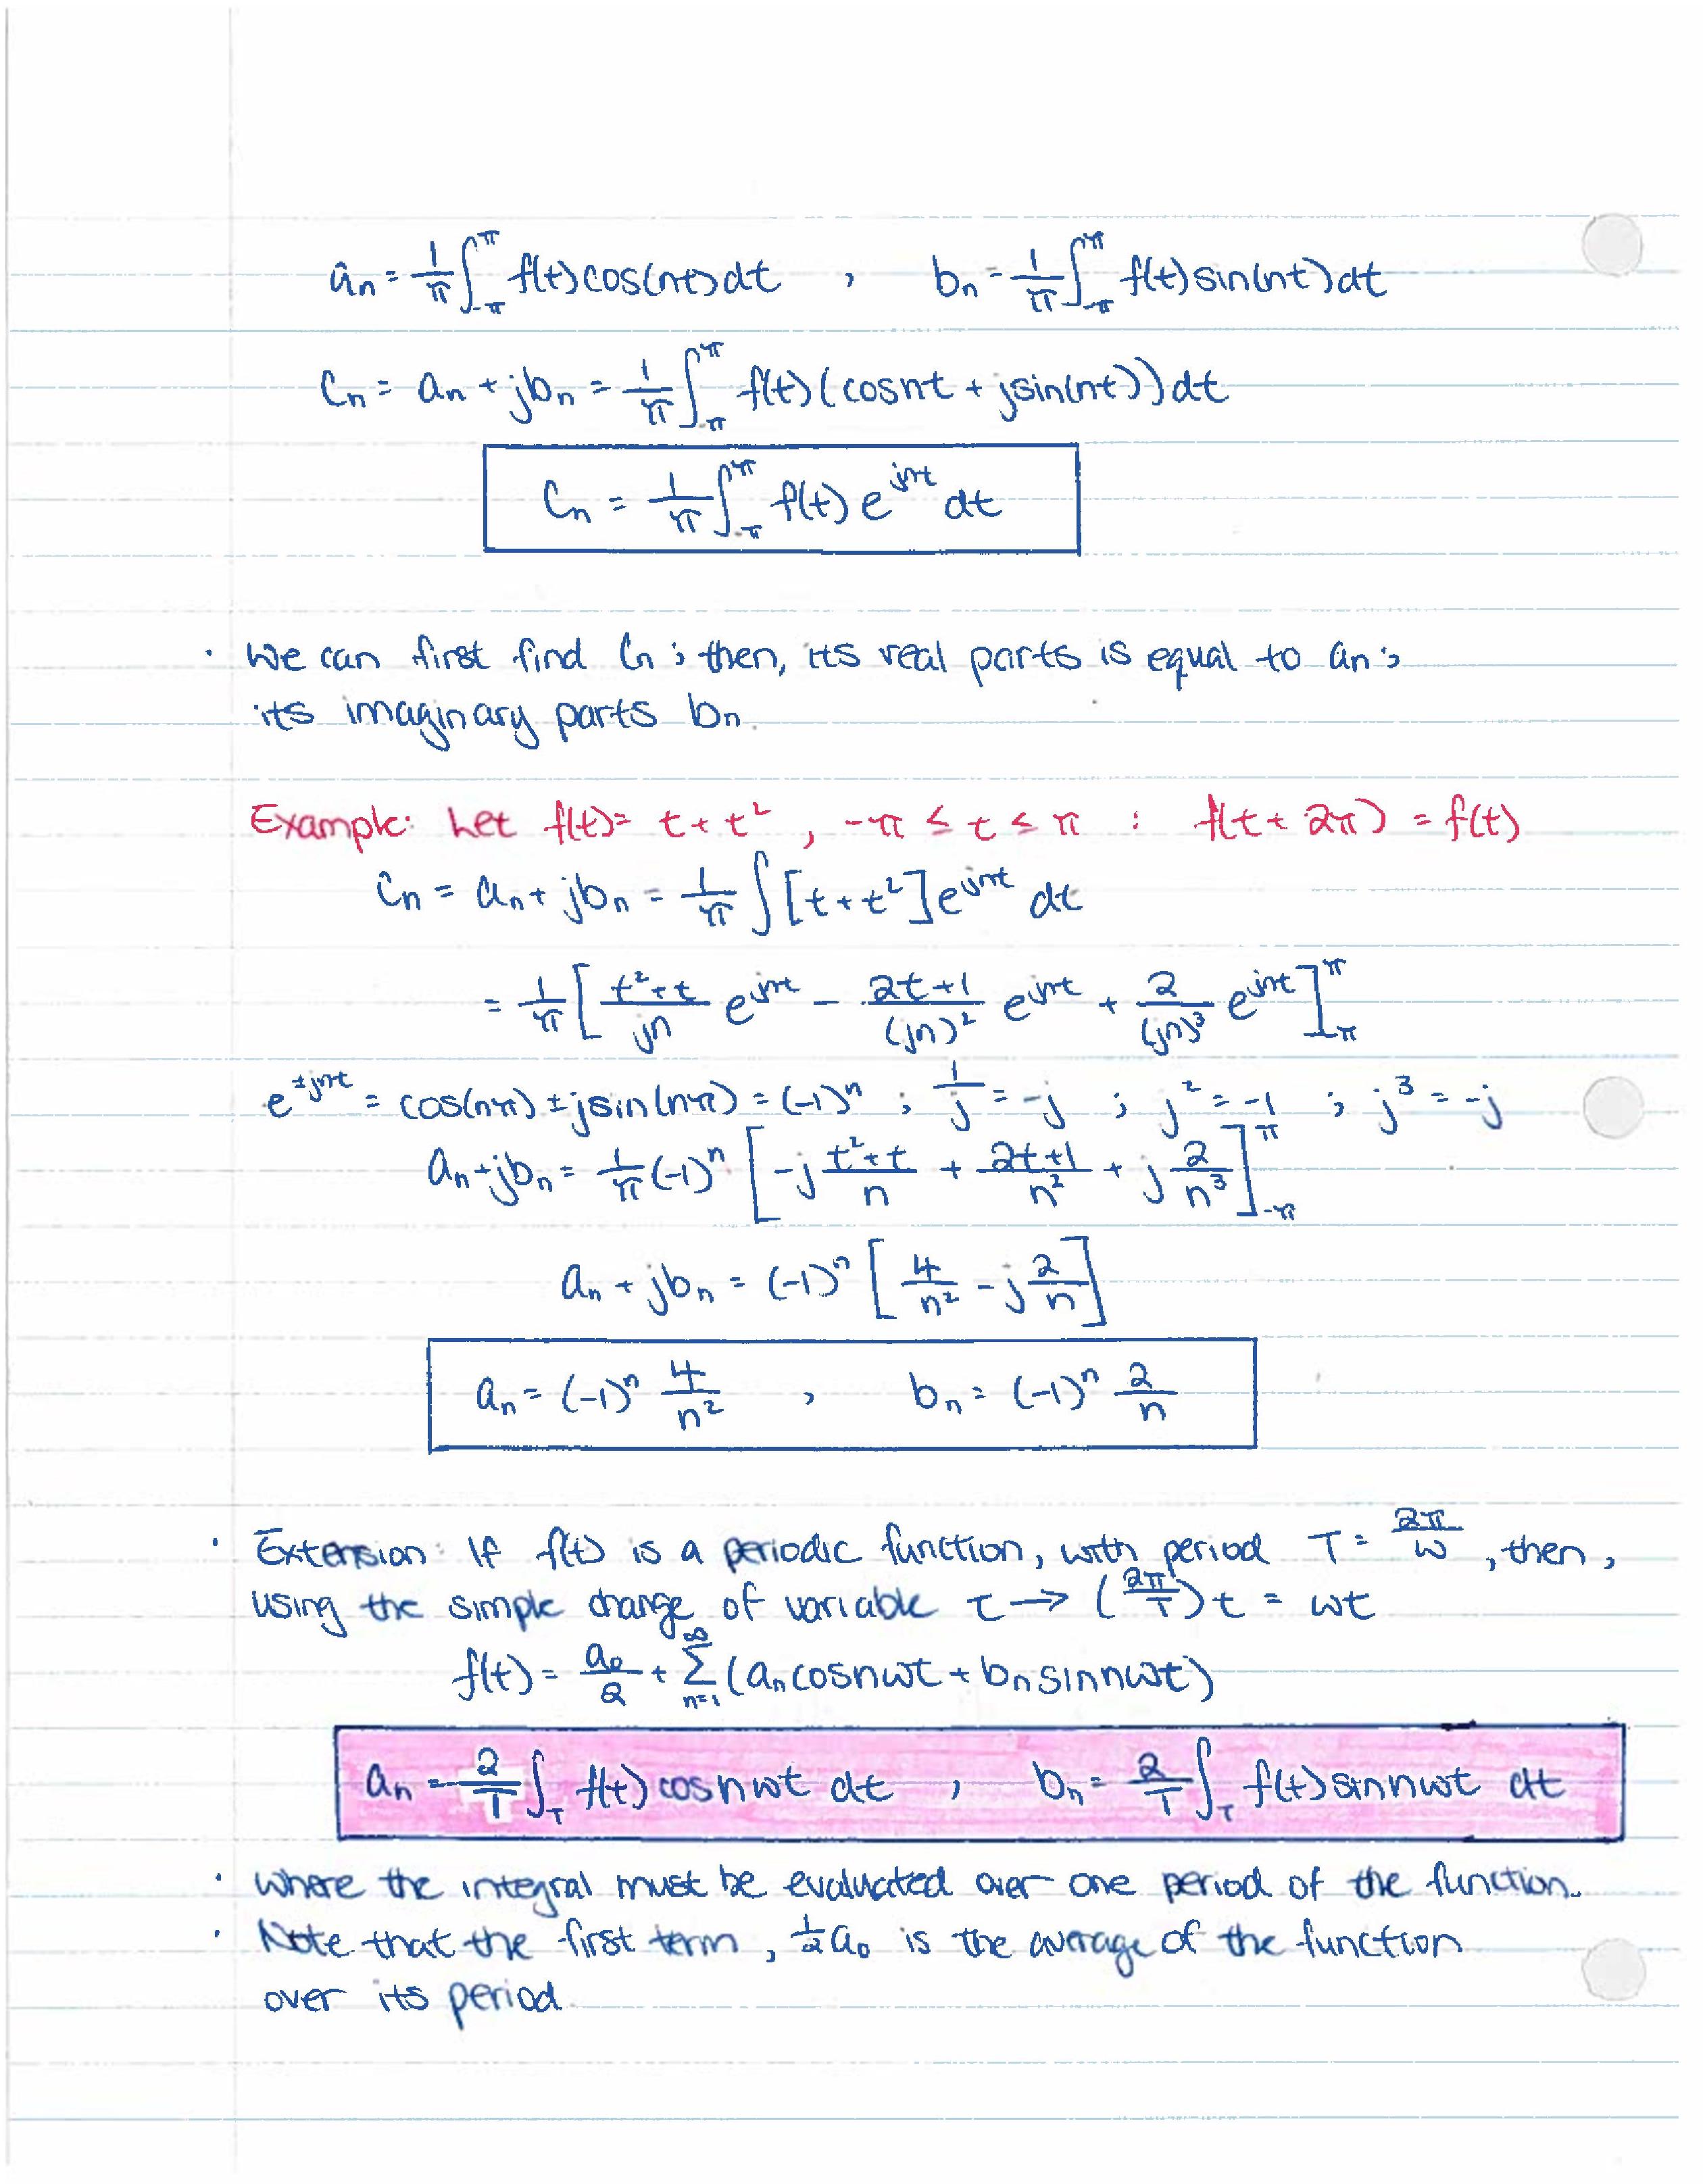 aₙ = 1/π ∫_{-π}^{π} f(t)cos(nt)dt , bₙ = 1/π ∫_{-π}^{π} f(t)sin(nt)dt
Cₙ = aₙ + jbₙ = 1/π ∫_{-π}^{π} f(t)(cosnt + jsin(nt))dt
Cₙ = 1/π ∫_{-π}^{π} f(t) e^{jnt} dt
· We can first find Cₙ ; then, its real parts is equal to aₙ ;
its imaginary parts bₙ.
Example: Let f(t) = t + t² , -π ≤ t ≤ π : f(t + 2π) = f(t)
Cₙ = aₙ + jbₙ = 1/π ∫ [t + t²]e^{jnt} dt
= 1/π [ (t²+t)/(jn) e^{jnt} - (2t+1)/(jn)² e^{jnt} + 2/(jn)³ e^{jnt} ]_{-π}^{π}
e^{±jnt} = cos(nπ) ± jsin(nπ) = (-1)ⁿ ; 1/j = -j ; j² = -1 ; j³ = -j
aₙ + jbₙ = 1/π (-1)ⁿ [ -j (t²+t)/n + (2t+1)/n² + j 2/n³ ]_{-π}^{π}
aₙ + jbₙ = (-1)ⁿ [ 4/n² - j 2/n ]
aₙ = (-1)ⁿ 4/n² , bₙ = (-1)ⁿ 2/n
· Extension: If f(t) is a periodic function, with period T = 2π/ω , then,
using the simple change of variable τ → (2π/T)t = ωt
f(t) = a₀/2 + Σ_{n=1}^{∞} (aₙcosnωt + bₙsinnωt)
aₙ = 2/T ∫_T f(t)cosnωt dt , bₙ = 2/T ∫_T f(t)sinnωt dt
· where the integral must be evaluated over one period of the function.
· Note that the first term, ½a₀ is the average of the function
over its period